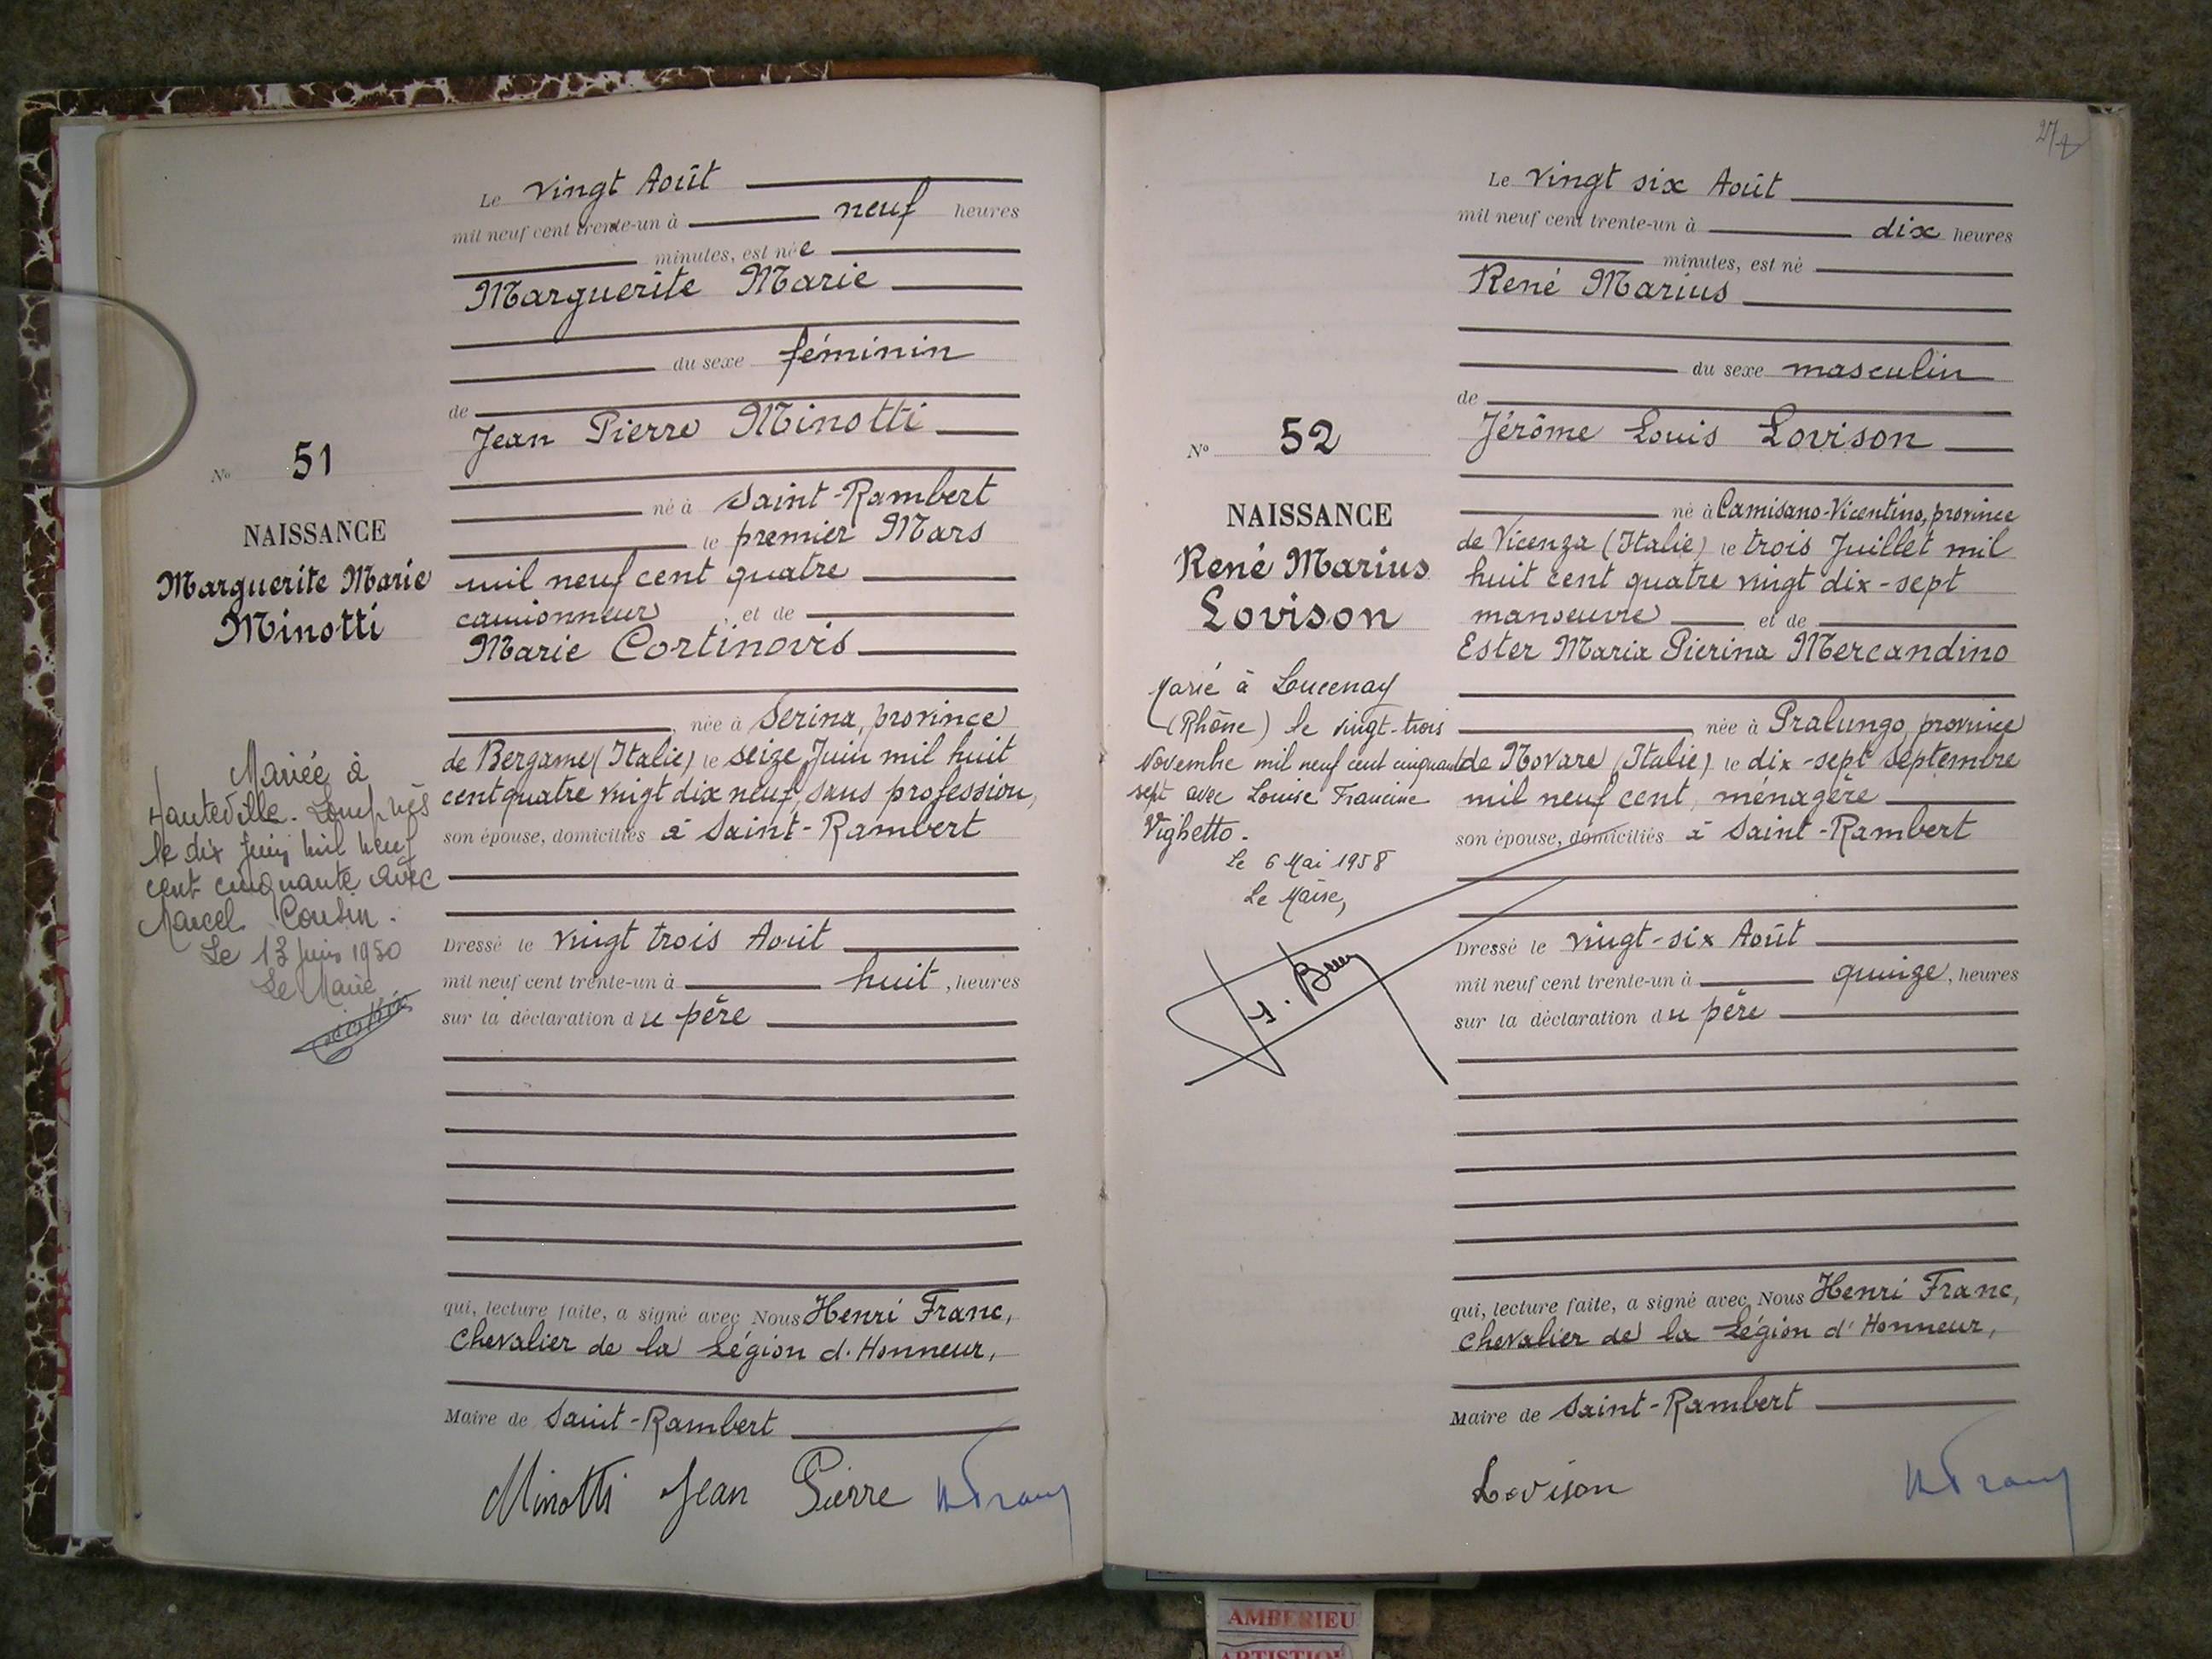 Le vingt Août
mil neuf cent trente-un à neuf heures
minutes, est née
Marguerite Marie
du sexe féminin
de
Jean Pierre Minotti
né à Saint-Rambert
le premier Mars
mil neuf cent quatre
camionneur, et de
Marie Cortinovis
née à Serina, province
de Bergame (Italie) le seize Juin mil huit
cent quatre vingt dix neuf, sans profession,
son épouse, domiciliés à Saint-Rambert
Dressé le vingt trois Août
mil neuf cent trente-un à huit, heures
sur la déclaration du père
qui, lecture faite, a signé avec Nous Henri Franc,
Chevalier de la Légion d'Honneur,
Maire de Saint-Rambert
Minotti Jean Pierre
N° 51
NAISSANCE
Marguerite Marie
Minotti
Mariée à
Hauteville-Lompnès
le dix juin mil neuf
cent cinquante avec
Marcel
Le 13 Juin 1950
Le Maire
27
Le vingt six Août
mil neuf cent trente-un à dix heures
minutes, est né
René Marius
du sexe masculin
de
Jérôme Louis Lovison
né à Camisano-Vicentino, province
de Vicenza (Italie) le trois Juillet mil
huit cent quatre vingt dix-sept
manœuvre et de
Ester Maria Pierina Mercandino
née à Pralungo, province
de Novare (Italie) le dix-sept Septembre
mil neuf cent, ménagère
son épouse, domiciliés à Saint-Rambert
Dressé le vingt-six Août
mil neuf cent trente-un à quinze, heures
sur la déclaration du père
qui, lecture faite, a signé avec Nous Henri Franc,
Chevalier de la Légion d'Honneur,
Maire de Saint-Rambert
Lovison
N° 52
NAISSANCE
René Marius
Lovison
Marié à Lucenay
(Rhône) le vingt-trois
Novembre mil neuf cent cinquante
sept avec Louise Francine
Vighetto.
Le 6 Mai 1958
Le Maire,
AMBERIEU